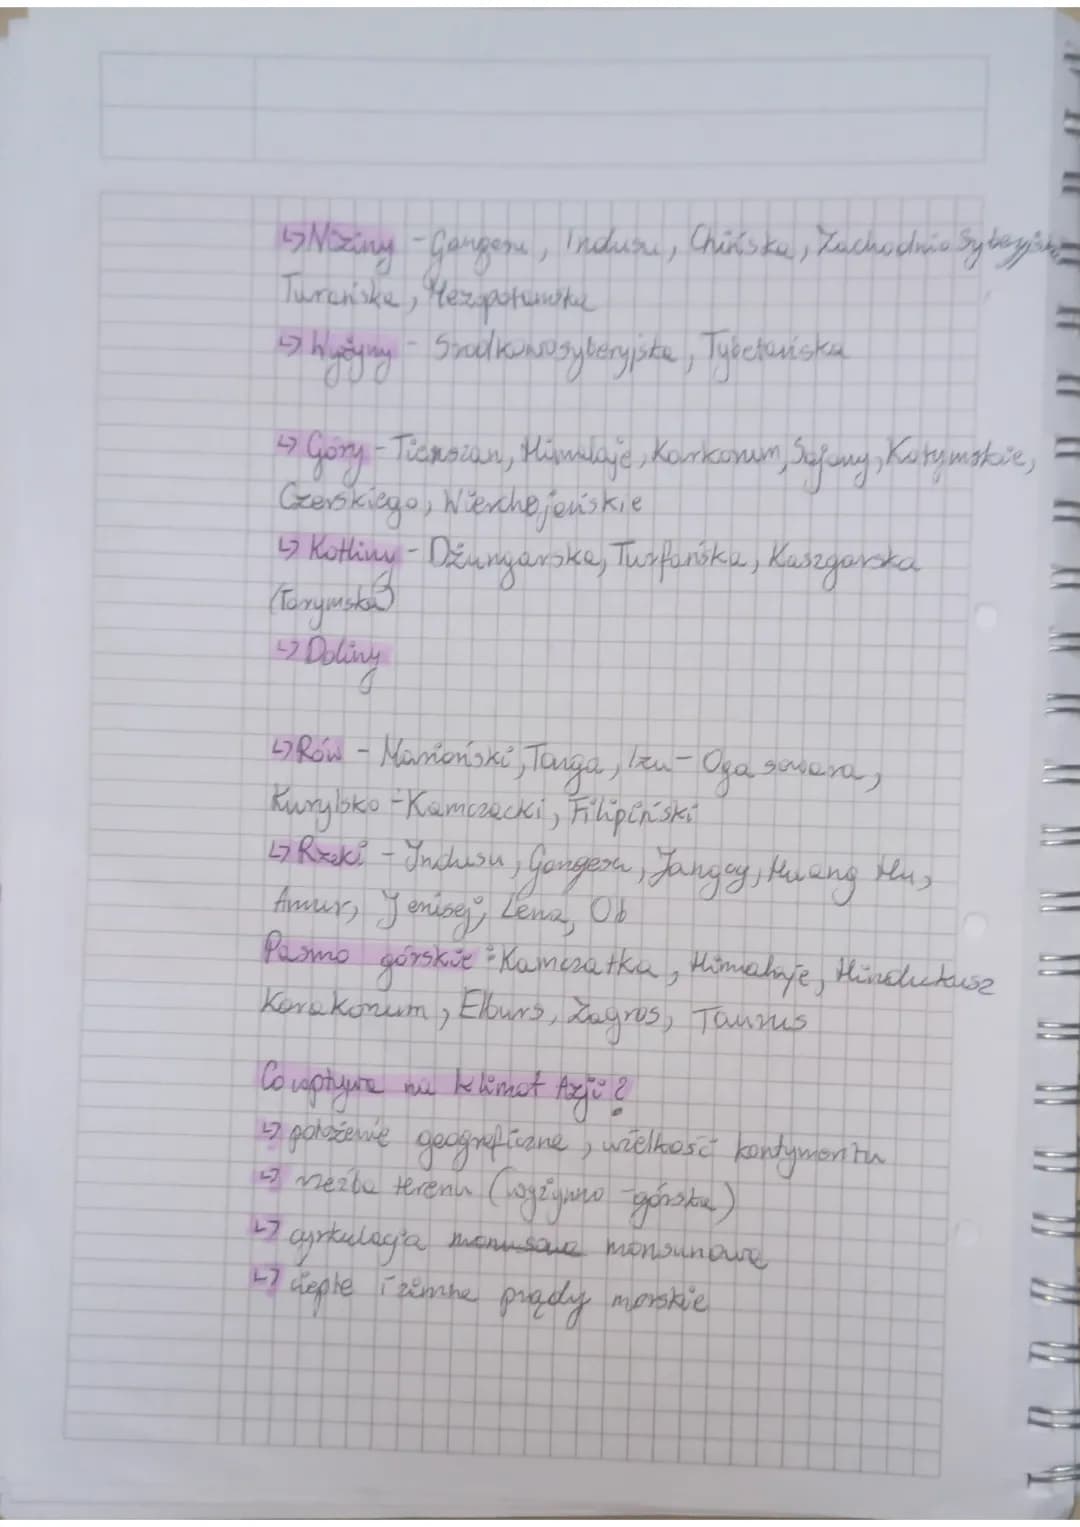 ↳ Niziny - Gangesu, Indusu, Chińska, Zachodnio Syberyjska
Turańska, Mezopotamska
↳ Wyżyny - Środkowosyberyjska, Tybetańska
↳ Góry - Tienszan, Himalaje, Karkorum, Sajany, Kołymskie,
Czerskiego, Wierchojańskie
↳ Kotliny - Dżungarska, Turfańska, Kaszgarska
(Tarymska)
↳ Doliny
↳ Rów - Mariański, Tonga, Izu - Oga sawara,
Kurylsko - Kamczacki, Filipiński
↳ Rzeki - Indusu, Gangesu, Jangcy, Huang Hu,
Amur, Jenisej, Lena, Ob
Pasmo górskie: Kamczatka, Himalaje, Hindukusz
Karakorum, Elburs, Zagros, Taurus
Co wpływa na klimat Azji?
↳ położenie geograficzne, wielkość kontymentu
↳ rzeźba terenu (wyżynno - górska)
↳ cyrkulacja monusowa monsunowa
↳ ciepłe i zimne prądy morskie